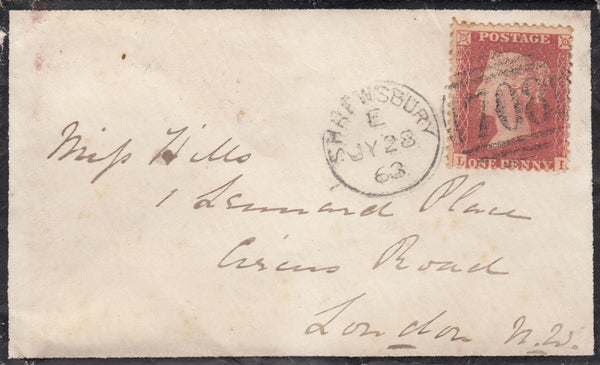 POSTAGE
708
L ONE PENNY I
SHREWSBURY
E
JY 28
63
Miss Hills
1 Lennard Place
Circus Road
London N.W.